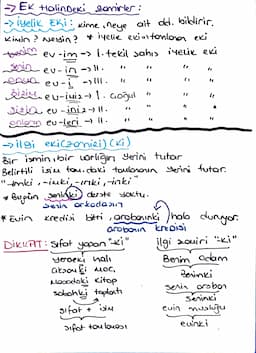 → EK Halindeki Zamirler:
→ iyelik Eki: kime, neye ait old. bildirir.
Kimin? Neyin? * iyelik eki=tamlanan eki
benim ev-im → I. tekil şahıs iyelik eki
senin ev-in → II. " " " "
onun ev-i → III. " " " "
bizim ev-imiz → I. çoğul " " "
sizin ev-iniz → II. " " " "
onların ev-leri → " " "
→ ilgi eki(zamiri)(ki)
Bir ismin, bir varlığın yerini tutar
Belirtili isim tam.daki tamlananın yerini tutar.
"-ımkı, -inki,
* Bugün seninki derste yoktu.
senin arkadaşın
* Evin kredisi bitti, arabanınki hala duruyor.
arabanın kredisi
DİKKAT: Sıfat yapan "-ki" ilgi zamiri "-ki"
yerdeki halı Benim odam
akşamki maç Benimki
Masadaki kitap senin araban
sabahki toplantı Seninki
sıfat + isim evin musluğu
sıfat tamlaması evinki